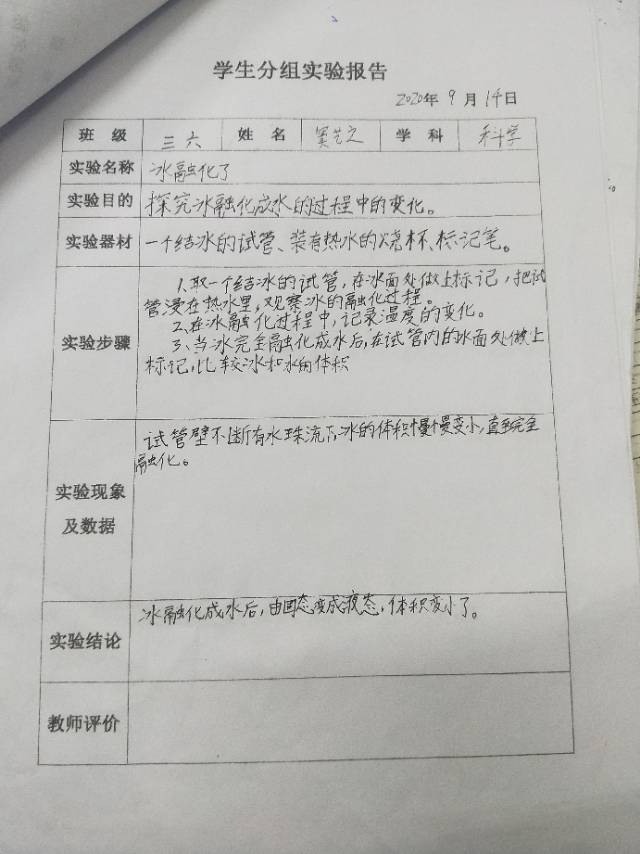 学生分组实验报告
2020年 9 月 14日
班 级 三六 姓 名 窦艺之 学 科 科学
实验名称 冰融化了
实验目的 探究冰融化成水的过程中的变化。
实验器材 一个结冰的试管、装有热水的烧杯、标记笔。
实验步骤
1.取一个结冰的试管,在冰面处做上标记,把试
管浸在热水里,观察冰的融化过程。
2.在冰融化过程中,记录温度的变化。
3、当冰完全融化成水后,在试管内的水面处做上
标记,比较冰和水的体积
实验现象
及数据
试管壁不断有水珠流下,冰的体积慢慢变小,直至完全
融化。
实验结论
冰融化成水后,由固态变成液态,体积变小了。
教师评价